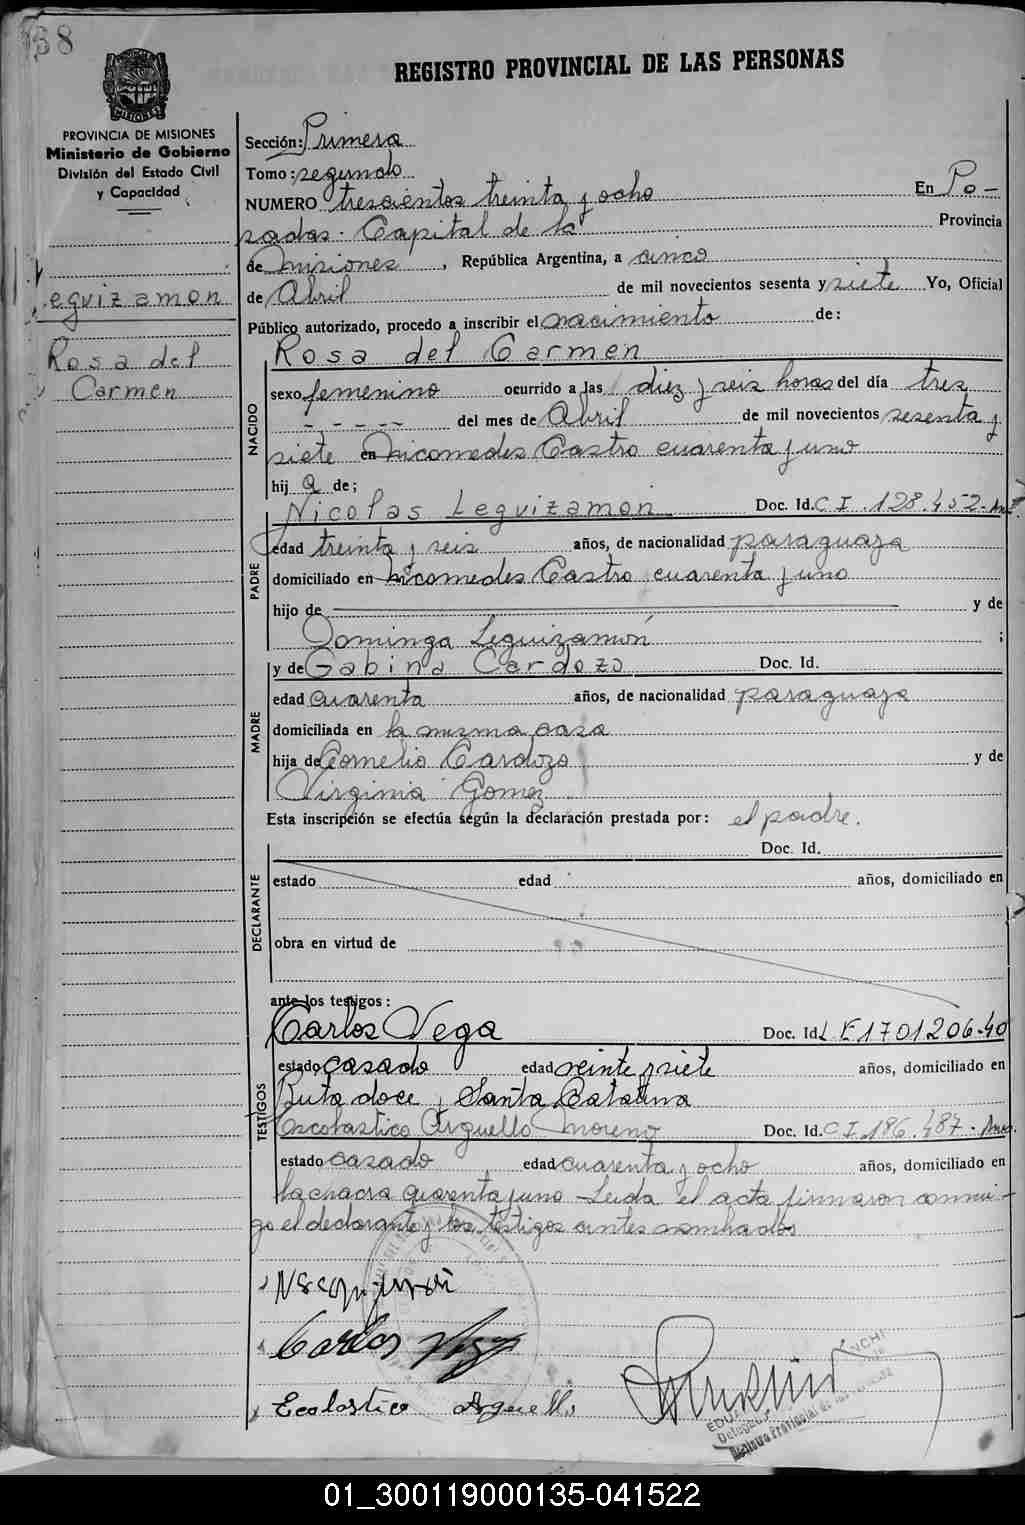 38
REGISTRO PROVINCIAL DE LAS PERSONAS
PROVINCIA DE MISIONES
Ministerio de Gobierno
División del Estado Civil
y Capacidad
Leguizamon
Rosa del
Carmen
Sección: Primera
Tomo: segundo
NUMERO trescientos treinta y ocho En Po-
sadas. Capital de la Provincia
de Misiones, República Argentina, a cinco
de Abril de mil novecientos sesenta y siete Yo, Oficial
Público autorizado, procedo a inscribir el nacimiento de:
Rosa del Carmen
NACIDO
sexo femenino ocurrido a las diez y seis horas del día tres
- - - - - del mes de Abril de mil novecientos sesenta y
siete en Nicomedes Castro cuarenta y uno
hij a de;
Nicolas Leguizamon Doc. Id. C I . 128.452-
PADRE
edad treinta y seis años, de nacionalidad paraguaya
domiciliado en Nicomedes Castro cuarenta y uno
hijo de y de
Dominga Leguizamón ;
y de Gabina Cardozo Doc. Id.
MADRE
edad cuarenta años, de nacionalidad paraguaya
domiciliada en la misma casa
hija de Cornelio Cardozo y de
Virginia Gomez
Esta inscripción se efectúa según la declaración prestada por: el padre.
Doc. Id.
DECLARANTE
estado edad años, domiciliado en
obra en virtud de
ante los testigos:
Carlos Vega Doc. Id. L E 1701206-40
TESTIGOS
estado casado edad veinte y siete años, domiciliado en
Ruta doce y Santa Catalina
Escolastico Arguello Moreno Doc. Id. C I .186.487-
estado casado edad cuarenta y ocho años, domiciliado en
la chacra cuarenta y uno - Leida el acta firmaron conmi-
go el declarante y los testigos antes nombrados
Carlos Vega
Ecolostico Arguello
Delegado
Registro Provincial de las Personas
01_300119000135-041522